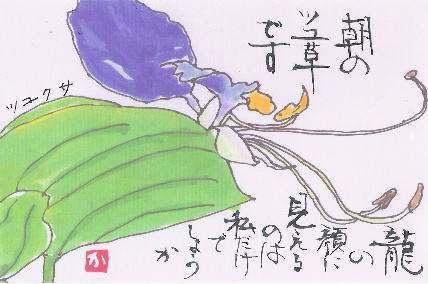 朝の
ツユ草
です
ツユクサ
龍の
顔に
見える
のは
私だけ
で
しょう
か
か